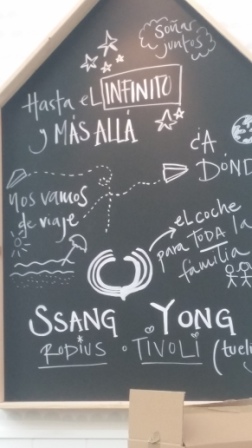 Soñar
juntos
Hasta el INFINITO
y MÁS ALLÁ
¿A
DÓND
nos vamos
de viaje
el coche
para TODA la
familia
SSANG YONG
RODIUS o TIVOLI (tueli